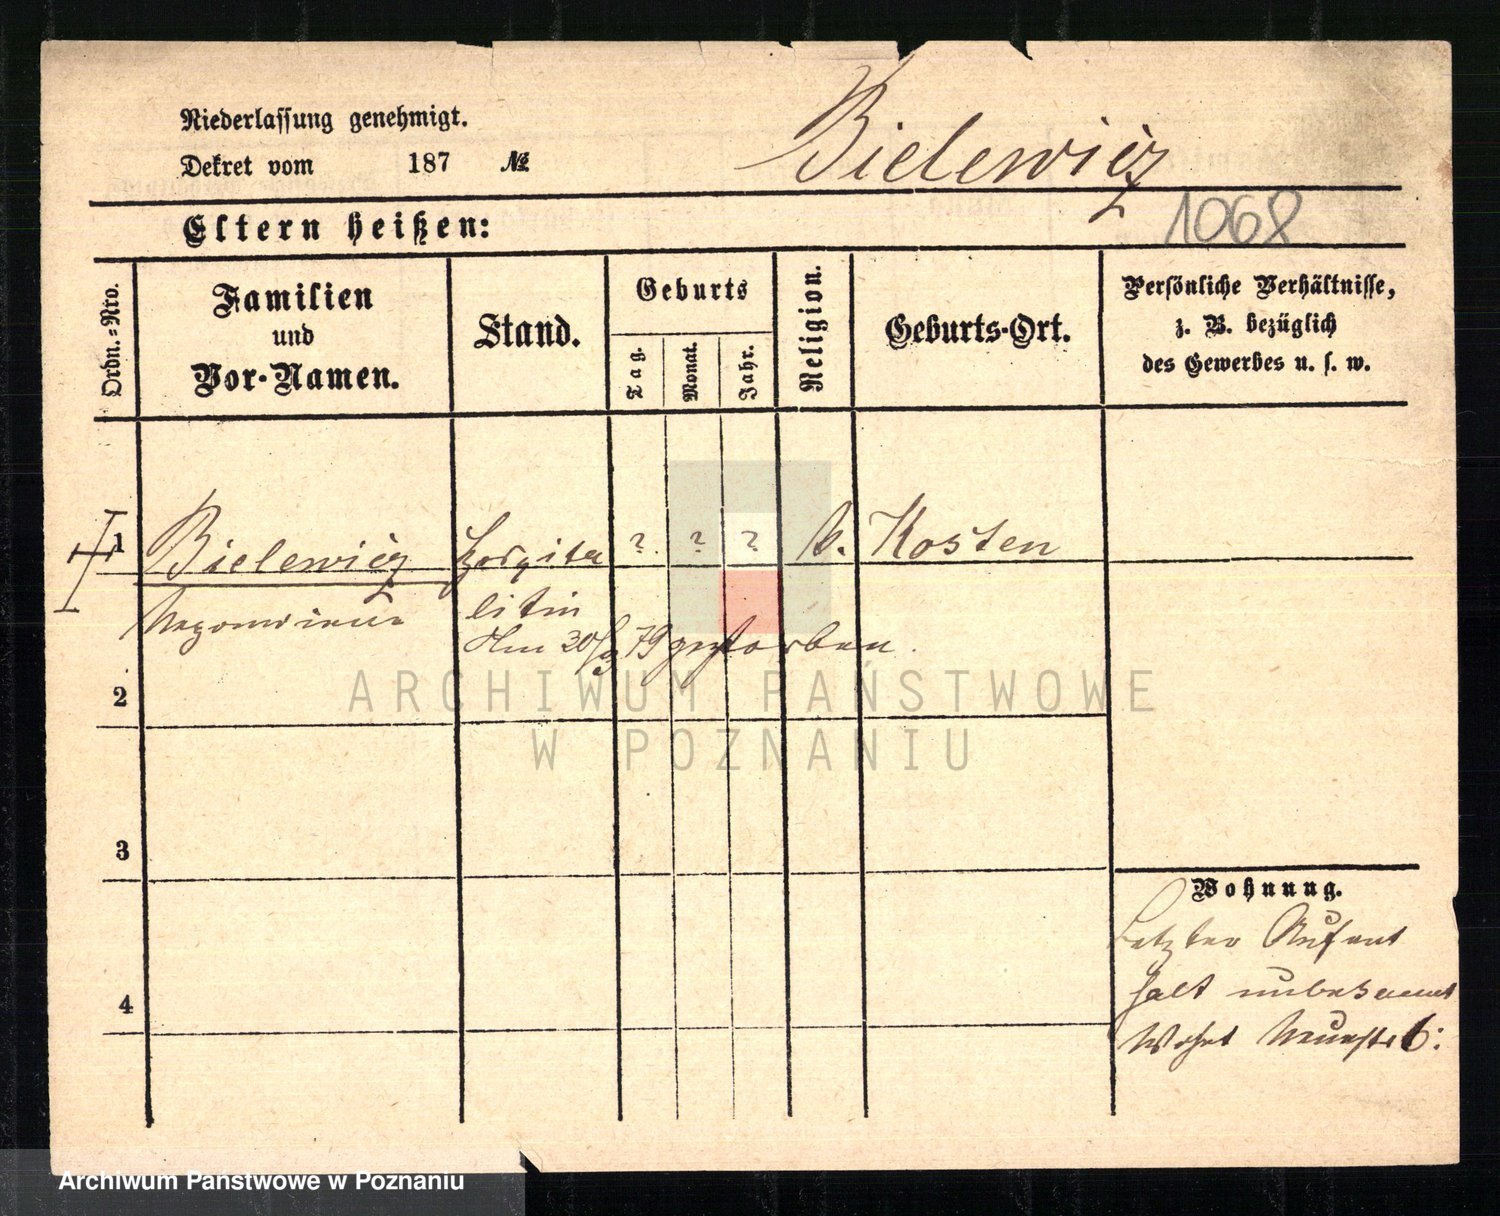 Niederlassung genehmigt.
Dekret vom 187 №
Bielewicz
1068
Eltern heißen:
Ordn.-Nro.
Familien
und
Vor-Namen.
Stand.
Geburts
Tag.
Monat.
Jahr.
Religion.
Geburts-Ort.
Persönliche Verhältnisse,
z. B. bezüglich
des Gewerbes u. s. w.
1 Bielewicz Hospita ? ? ? k. Kosten
litin
Am 30/9 79 gestorben.
2
3
4
Wohnung.
Letzter Aufent
halt unbekannt
Wohnt 6:
ARCHIWUM PAŃSTWOWE
W POZNANIU
Archiwum Państwowe w Poznaniu